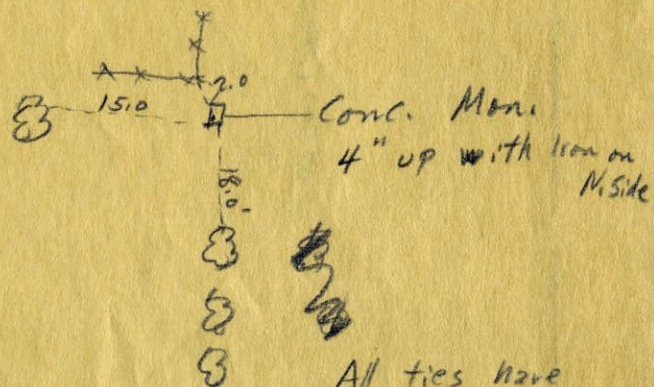 2.0
15.0
Conc. Mon.
4" up with Iron on
N. Side
18.0
All ties have